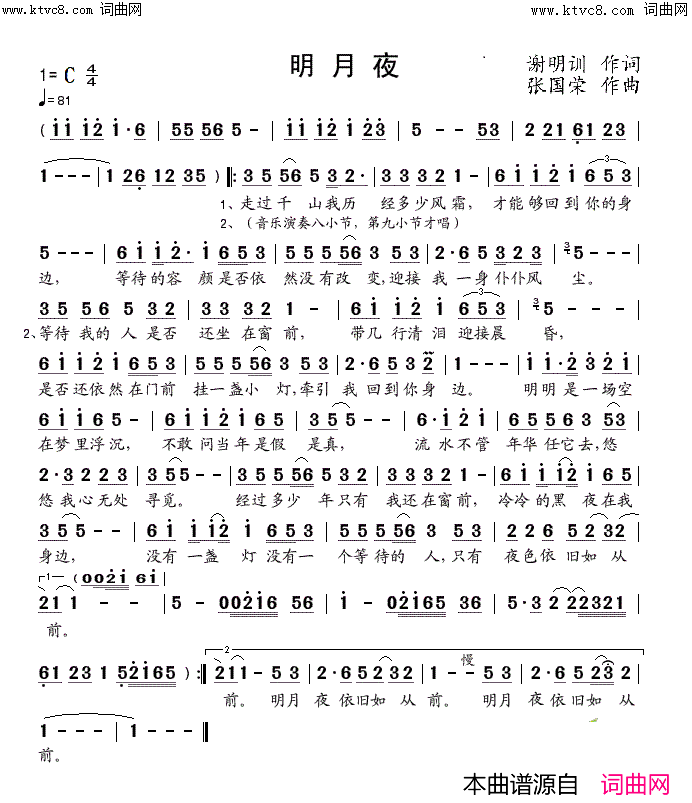 www.ktvc8.com 词曲网 www.ktvc8.com 词曲网
1= C 4/4 明月夜 谢明训 作词
♩=81 张国荣 作曲
( i i i 2 i · 6 | 5 5 5 6 5 - | i i i 2 i 2 3 | 5 - - 5 3 | 2 2 1 6 1 2 3 |
1 - - - | 1 2 6 1 2 3 5 ) ‖: 3 5 5 6 5 3 2 · | 3 3 3 2 1 - | 6 i i 2 i 6 5 3 |
1、走过千 山我历 经多少风霜, 才能够回到你的身
2、(音乐演奏八小节,第九小节才唱)
5 - - - | 6 i i 2 · i 6 5 3 | 5 5 5 5 6 5 3 5 | 2 · 6 5 3 2 3 | 5 - - - |
边, 等待的容 颜是否依 然没有改 变,迎接 我一身仆仆风 尘。
3 5 5 6 5 3 2 | 3 3 3 2 1 - | 6 i i 2 i 6 5 3 | 5 - - - |
2、等待 我的人 是否 还坐在窗前, 带几行清泪迎接晨 昏,
6 i i 2 i 6 5 3 | 5 5 5 5 6 5 3 | 2 · 6 5 3 2 | 1 - - - | i i · 2 3 2 |
是否还依然在门前 挂一盏小 灯,牵引 我回到你身 边。 明明是一场空
6 i i 6 5 - | 6 i i 2 i 6 5 | 3 5 - - | 6 · i 2 i 6 5 6 3 5 3 |
在梦里浮沉, 不敢问当年是假 是真, 流水不管 年华任它去,悠
2 · 3 2 2 3 | 3 5 5 - - | 3 5 5 5 6 5 3 2 | 3 3 3 2 1 - | 6 i i i 2 i 6 5 |
悠我心无处 寻觅。 经过多少 年只有 我还在窗前, 冷冷的黑 夜在我
3 5 5 - | 6 i i i 2 6 5 3 | 5 5 5 5 6 5 3 | 2 2 6 5 2 3 2 |
身边, 没有一盏 灯没有一 个等待的 人,只有 夜色依旧如 从
1 ( 0 0 2 i 6 i
2 1 1 - - | 5 - 0 0 2 i 6 5 6 | i - 0 0 2 i 6 5 3 6 | 5 · 3 2 2 2 3 2 1 |
前。
2 慢
6 1 2 3 1 5 2 i 6 5 ) :‖ 2 1 1 - 5 3 | 2 · 6 5 2 3 2 | 1 - - 5 3 | 2 · 6 5 2 3 2 |
前。 明月 夜依旧如 从 前。 明月 夜依旧如 从
1 - - - | 1 - - ‖
前。
本曲谱源自 词曲网